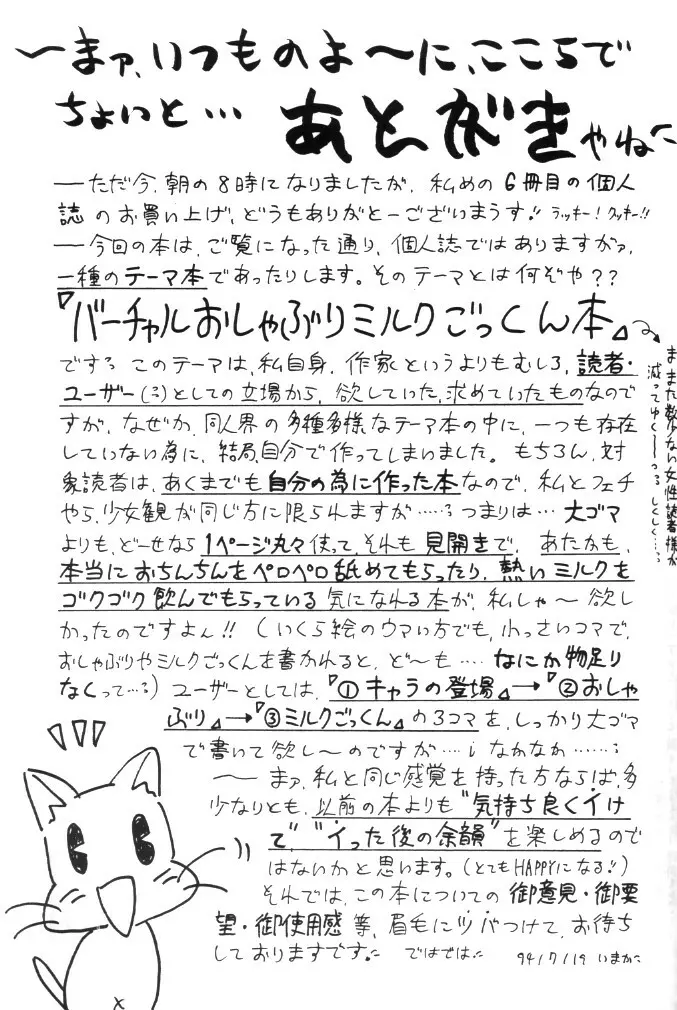 〜まァ、いつものよ〜に、ここらで
ちょいと… あとがきやね
──ただ今、朝の8時になりましたが、私めの6冊目の個人
誌のお買い上げ、どうもありがとーございまうす!! ラッキー!クッキー!!
──今回の本は、ご覧になった通り、個人誌ではありますがァ、
一種のテーマ本であったりします。そのテーマとは何ぞや??
『バーチャルおしゃぶりミルクごっくん本』
ですう このテーマは、私自身、作家というよりもむしろ、読者・
ユーザー(?)としての立場から、欲していた、求めていたものなので
すが、なぜか、同人界の多種多様なテーマ本の中に、一つも存在
していない為に、結局、自分で作ってしまいました。もちろん、対
象読者は、あくまでも自分の為に作った本なので、私とフェチ
やら、少女観が同じ方に限られますが……。つまりは…大ゴマ
よりも、どーせなら1ページ丸々使って、それも見開きで、あたかも、
本当におちんちんをペロペロ舐めてもらったり、熱いミルクを
ゴクゴク飲んでもらっている気になれる本が、私しゃ〜欲し
かったのですよん!! (いくら絵のウマい方でも、小っさいコマで、
おしゃぶりやミルクごっくんを書かれると、ど〜も‥‥なにか物足り
なくって…) ユーザーとしては、『①キャラの登場』→『②おしゃ
ぶり』→『③ミルクごっくん』の3コマを、しっかり大ゴマ
で書いて欲し〜のですが…なかなか……
──まァ、私と同じ感覚を持った方ならば、多
少なりとも、以前の本よりも"気持ち良くイけ
て"、"イった後の余韻"を楽しめるので
はないかと思います。(とてもHAPPYになる!!)
それでは、この本についての御意見・御要
望・御使用感等、眉毛にツバつけて、お待ち
しておりますです。 ではでは 94/7/19 いまかに
またまた数少ない女性読者様が
減ってゆく──っ しくしく…